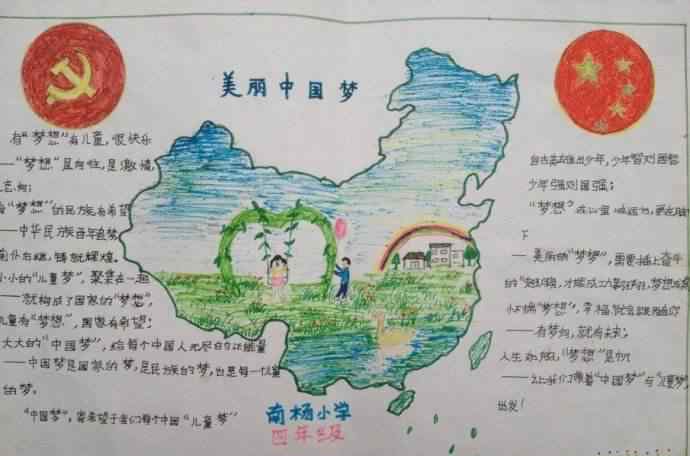 美丽中国梦
有“梦想”有儿童，很快乐
——“梦想”是向往，是激情，
“梦想”的民族有希望
——中华民族百年追梦
铸就辉煌。
小小的“儿童梦”，聚集在一起
——就构成了国家的“梦想”，
儿童有“梦想”，国家有希望；
大大的“中国梦”，给每个中国人无尽的正能量
——中国梦是国家的梦，是民族的梦，也是每一个
的梦。
“中国梦”，寄希望于我们每个中国“儿童梦”
自古英雄出少年，少年智则国智
少年强则国强；
“梦想”
下
——美丽的“梦想”，需要插上奋斗
的“翅膀”，才能成
“梦想”，幸福就会
——有梦想，就有未来；
人生
“梦想”是帆
——让我们
“中国梦”与“儿童梦”
出发！
南杨小学
四年级